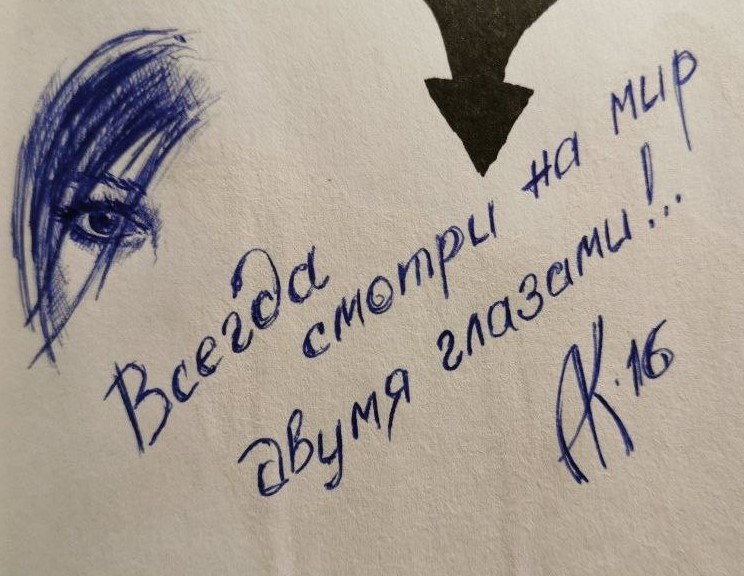 Всегда
смотри на мир
двумя глазами!..
АК.16